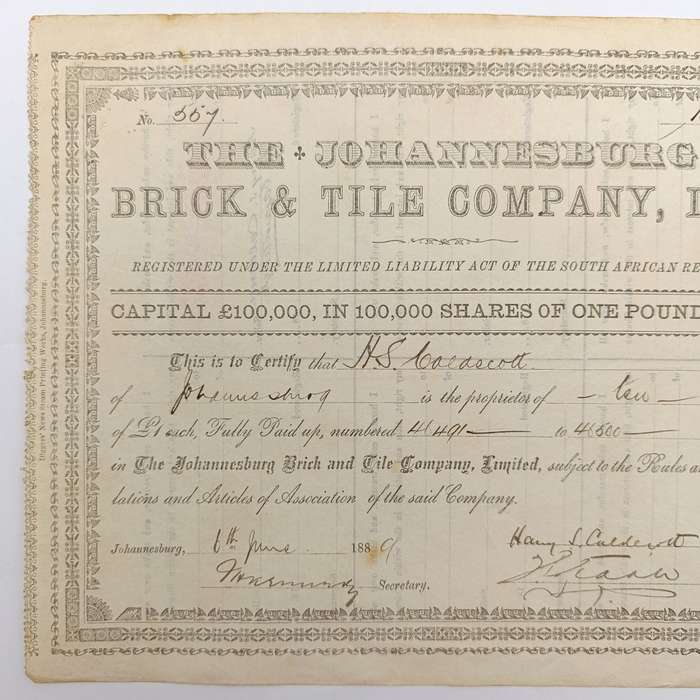 No. 557
THE JOHANNESBURG
BRICK & TILE COMPANY, L
REGISTERED UNDER THE LIMITED LIABILITY ACT OF THE SOUTH AFRICAN RE
CAPITAL £100,000, IN 100,000 SHARES OF ONE POUND
This is to Certify that H.S. Caldecott
of Johannesburg is the proprietor of — ten —
of £1 each, Fully Paid up, numbered 46491 — to 46500 —
in The Johannesburg Brick and Tile Company, Limited, subject to the Rules a
lations and Articles of Association of the said Company.
Johannesburg, 6th June 1889
Harry S. Caldecott
Secretary.
Argus New Steam Printing Works, Johannesburg.